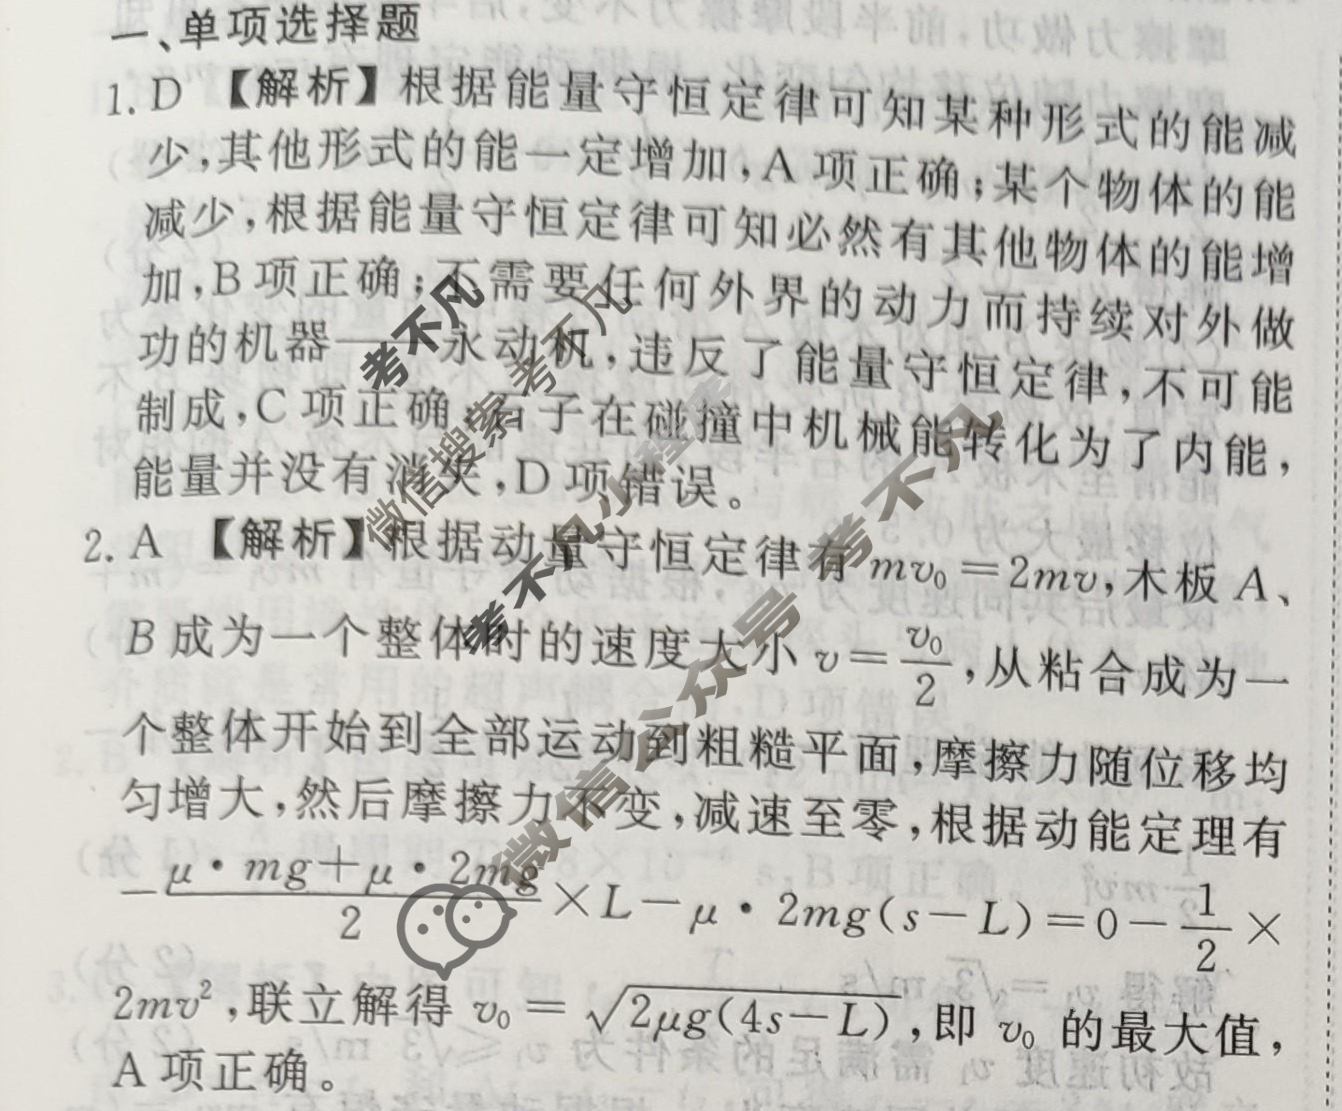 一、单项选择题
1. D 【解析】根据能量守恒定律可知某种形式的能减
少,其他形式的能一定增加,A 项正确;某个物体的能
减少,根据能量守恒定律可知必然有其他物体的能增
加,B 项正确;不需要任何外界的动力而持续对外做
功的机器——永动机,违反了能量守恒定律,不可能
制成,C 项正确;石子在碰撞中机械能转化为了内能,
能量并没有消失,D 项错误。
2. A 【解析】根据动量守恒定律有 mv₀=2mv,木板 A、
B 成为一个整体时的速度大小 v=v₀/2,从粘合成为一
个整体开始到全部运动到粗糙平面,摩擦力随位移均
匀增大,然后摩擦力不变,减速至零,根据动能定理有
-(μ·mg+μ·2mg)/2×L-μ·2mg(s-L)=0-1/2×
2mv²,联立解得 v₀=√(2μg(4s-L)),即 v₀ 的最大值,
A 项正确。
考不凡
微信搜索考不凡
考不凡小程序
微信公众号 考不凡